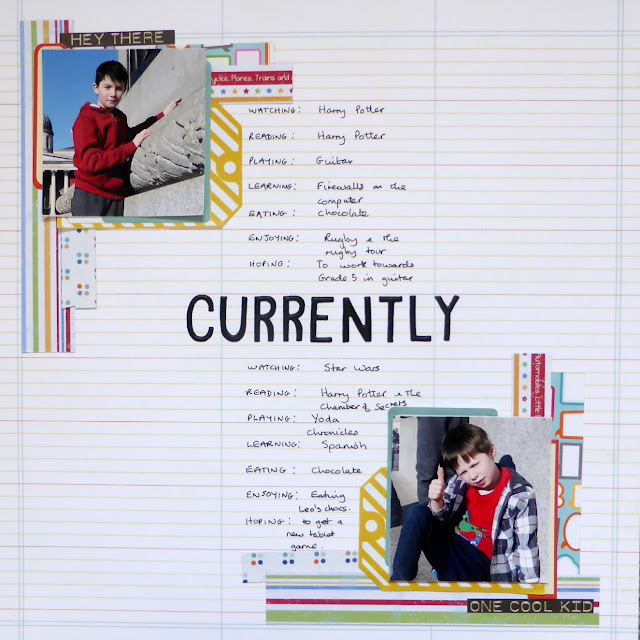 HEY THERE
ycles, Planes, Trains and
WATCHING: Harry Potter
READING: Harry Potter
PLAYING: Guitar
LEARNING: Firewalls on the
computer
EATING: Chocolate
ENJOYING: Rugby & the
rugby tour
HOPING: To work towards
Grade 5 in guitar
CURRENTLY
WATCHING: Star Wars
READING: Harry Potter & the
Chamber of Secrets
PLAYING: Yoda
Chronicles
LEARNING: Spanish
EATING: Chocolate
ENJOYING: Eating
Leo's chocs.
HOPING: to get a
new tablet
game.
Automobiles, Little
ONE COOL KID